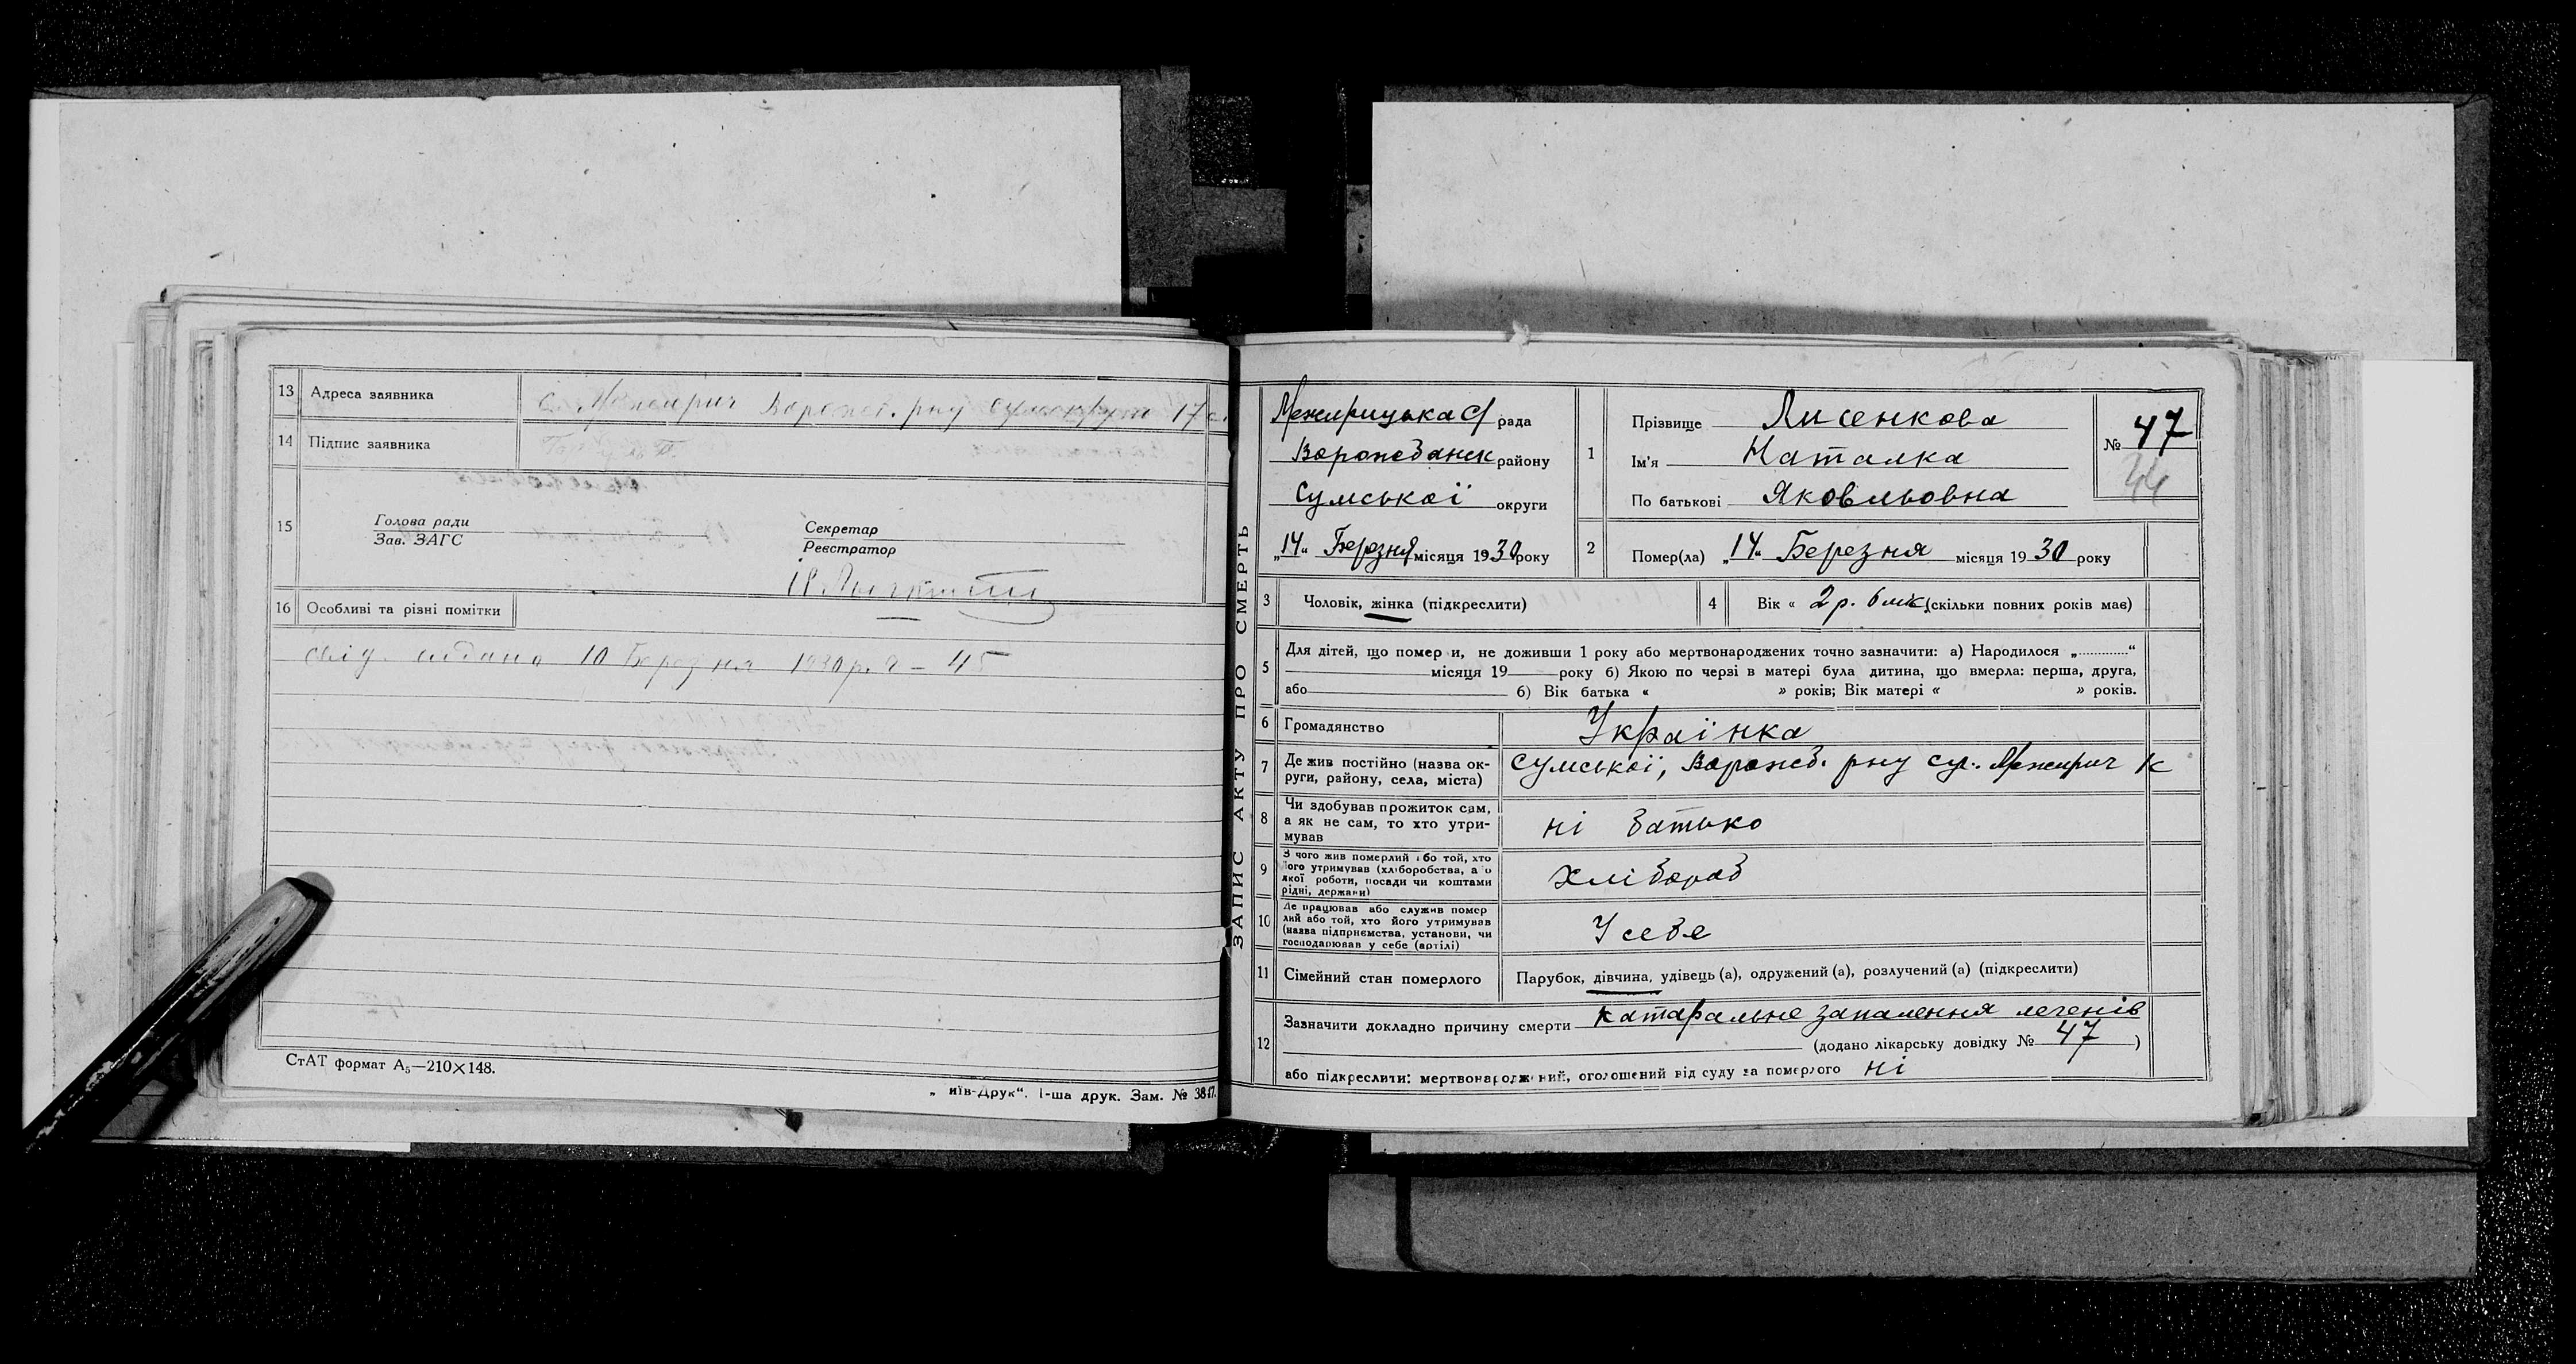 13 Адреса заявника с. Межирич Ворожб. рну Сумокруги 17 с.
14 Підпис заявника
15 Голова ради
Зав. ЗАГС
Секретар
Реєстратор
16 Особливі та різні помітки
свід. видано 10 Березня 1930 р. 2 – 45
СтАТ формат А₅—210×148.
„ иїв-Друк“. І-ша друк. Зам. № 3817.
ЗАПИС АКТУ ПРО СМЕРТЬ
Межирицька С/ рада
Ворожбянск району
Сумської округи
„14“ Березня місяця 1930 року
1 Прізвище Лисенкова
Ім'я Наталка
По батькові Яковльовна
№ 47
44
2 Помер(ла) „14“ Березня місяця 1930 року
3 Чоловік, жінка (підкреслити)
4 Вік « 2 р. 6 міс. (скільки повних років має)
5 Для дітей, що помер и, не доживши 1 року або мертвонароджених точно зазначити: а) Народилося „.............“
місяця 19 року б) Якою по черзі в матері була дитина, що вмерла: перша, друга,
або б) Вік батька « » років; Вік матері « » років.
6 Громадянство Українка
7 Де жив постійно (назва ок-
руги, району, села, міста) Сумської, Ворожб. рну су. Межирич К
8 Чи здобував прожиток сам,
а як не сам, то хто утри-
мував ні батько
9 З чого жив померлий або той, хто
його утримував (хліборобства, а о
якої роботи, посади чи коштами
рідні, держави) Хлібороб
10 Де працював або служив помер
лий або той, хто його утримував
(назва підприємства, установи, чи
господарював у себе (артілі) У себе
11 Сімейний стан померлого Парубок, дівчина, удівець (а), одружений (а), розлучений (а) (підкреслити)
12 Зазначити докладно причину смерти Катаральне запалення легенів
(додано лікарську довідку № 47 )
або підкреслити: мертвонароджений, оголошений від суду за померлого ні